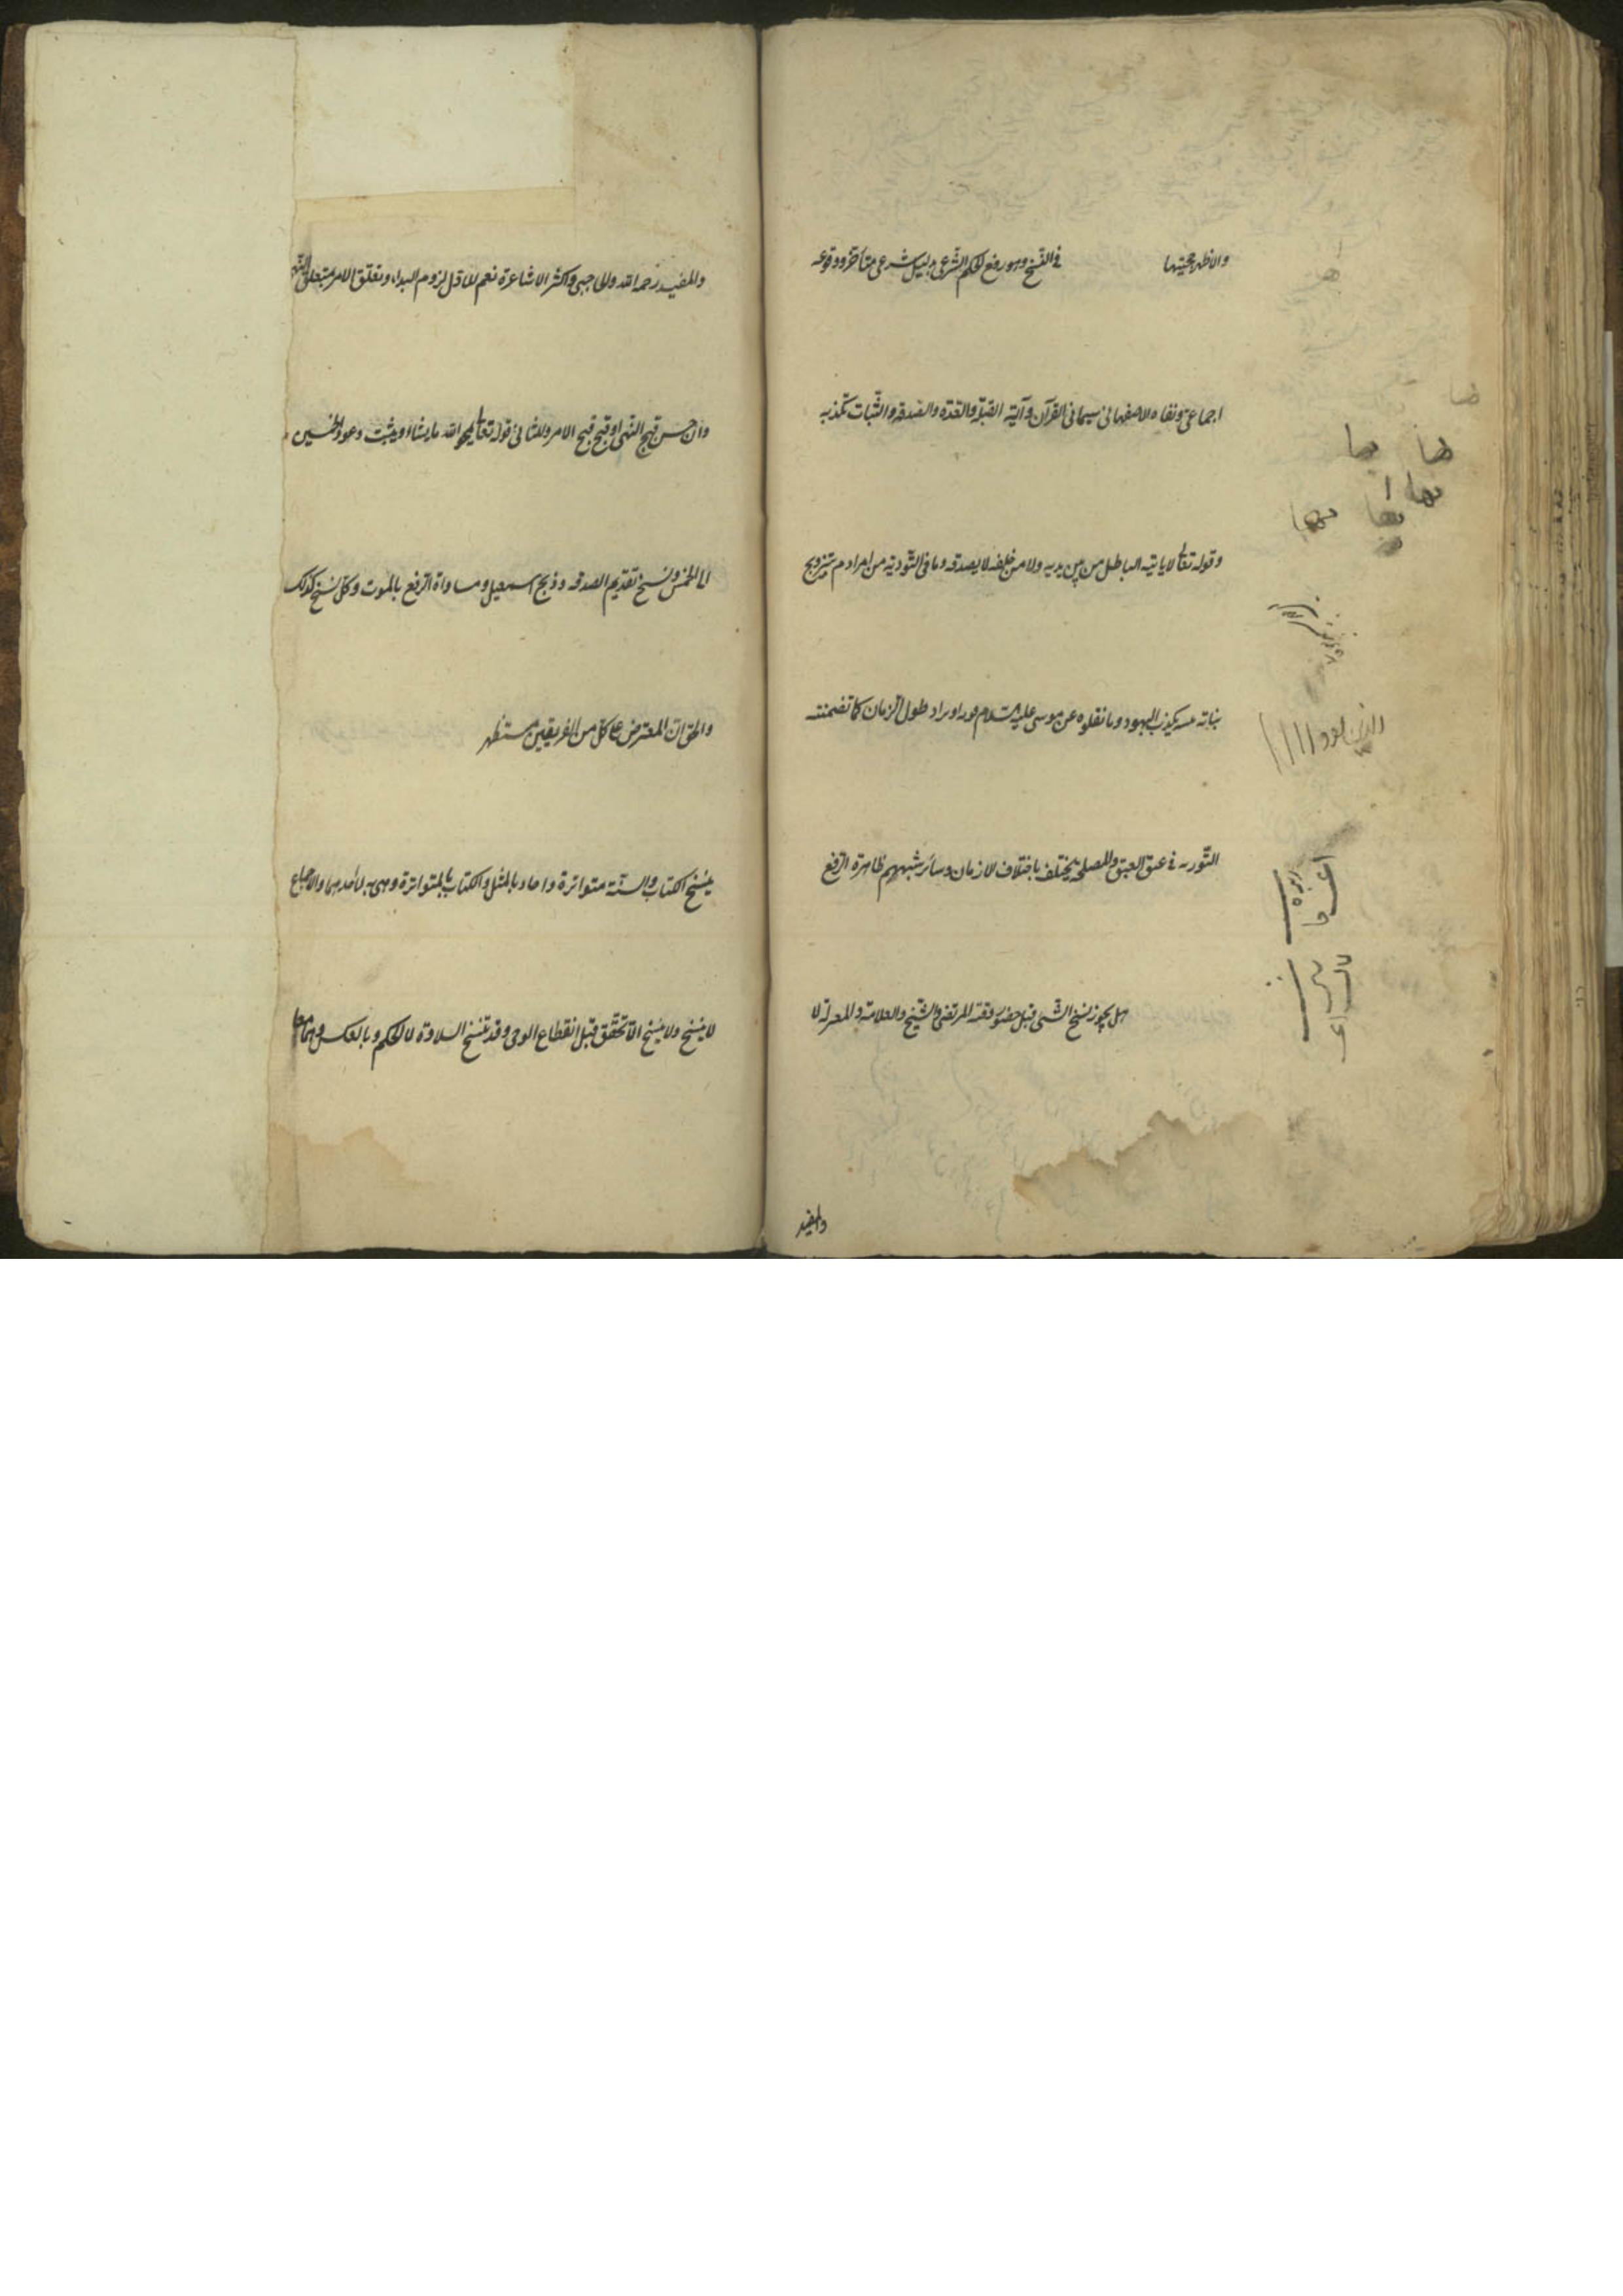 والاظهر حجيتها في النسخ وهو رفع الحكم الشرعى بدليل شرعى متاخر ووقوعه
اجماعى ونفاه الاصفهانى سيما فى القرآن وآية القبلة والعدة والصدقة والثبات تكذبه
وقوله تعالى لا ياتيه الباطل من بين يديه ولا من خلفه لا يصدقه وما فى التورية من امر ادم بتزويج
بناته يكذب اليهود وما نقلوه عن موسى عليه السلام او يراد طول الزمان كما تضمنته
التورية فى عتق العبد والمصلحة يختلف باختلاف الازمان وسائر شبههم ظاهرة الرفع
هل يجوز نسخ الشىء قبل حضور وقته المرتضى والشيخ والعلامة والمعتزلة لا
والمفيد
والمفيد رحمه الله والحاجبى واكثر الاشاعرة نعم للاول لزوم البداء وتعلق الامر بمتعلق النهى
وان حسن قبح النهى او قبح قبح الامر وللثانى قوله تعالى يمحو الله ما يشاء ويثبت وعود الخمسين
الى الخمس ونسخ تقديم الصدقة وذبح اسمعيل ومساواة الرفع بالموت وكل نسخ كذلك
والحق ان المعترض على كل من الفريقين مستظهر
ينسخ الكتاب والسنة متواترة واحاد بالمثل والكتاب بالمتواترة وهى به لا باحدهما والاجماع
لا ينسخ ولا ينسخ الا تحقق قبل انقطاع الوحى وقد تنسخ التلاوة لا الحكم وبالعكس وهما معا